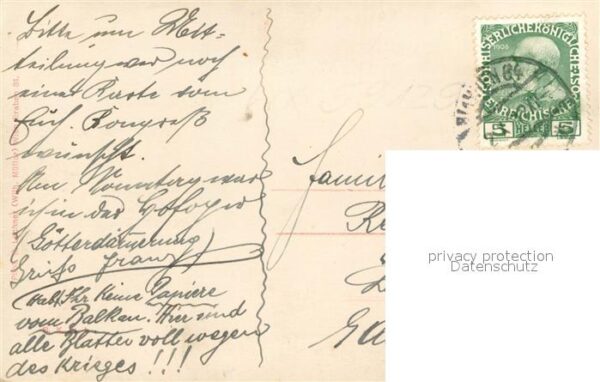 Bitte um Mit-
teilung wer noch
eine Karte vom
Euch. Kongreß
wünscht.
Am Sonntag war
ich in der Hofoper
(Götterdämerung)
Franz
Habt Ihr keine Papiere
vom Balkan. Hier sind
alle Blätter voll wegen
des Krieges!!!
KAISERLICHE KÖNIGLICHE
ÖSTERREICHISCHE POST
1908
5 HELLER 5
WIEN
Famil
privacy protection
Datenschutz